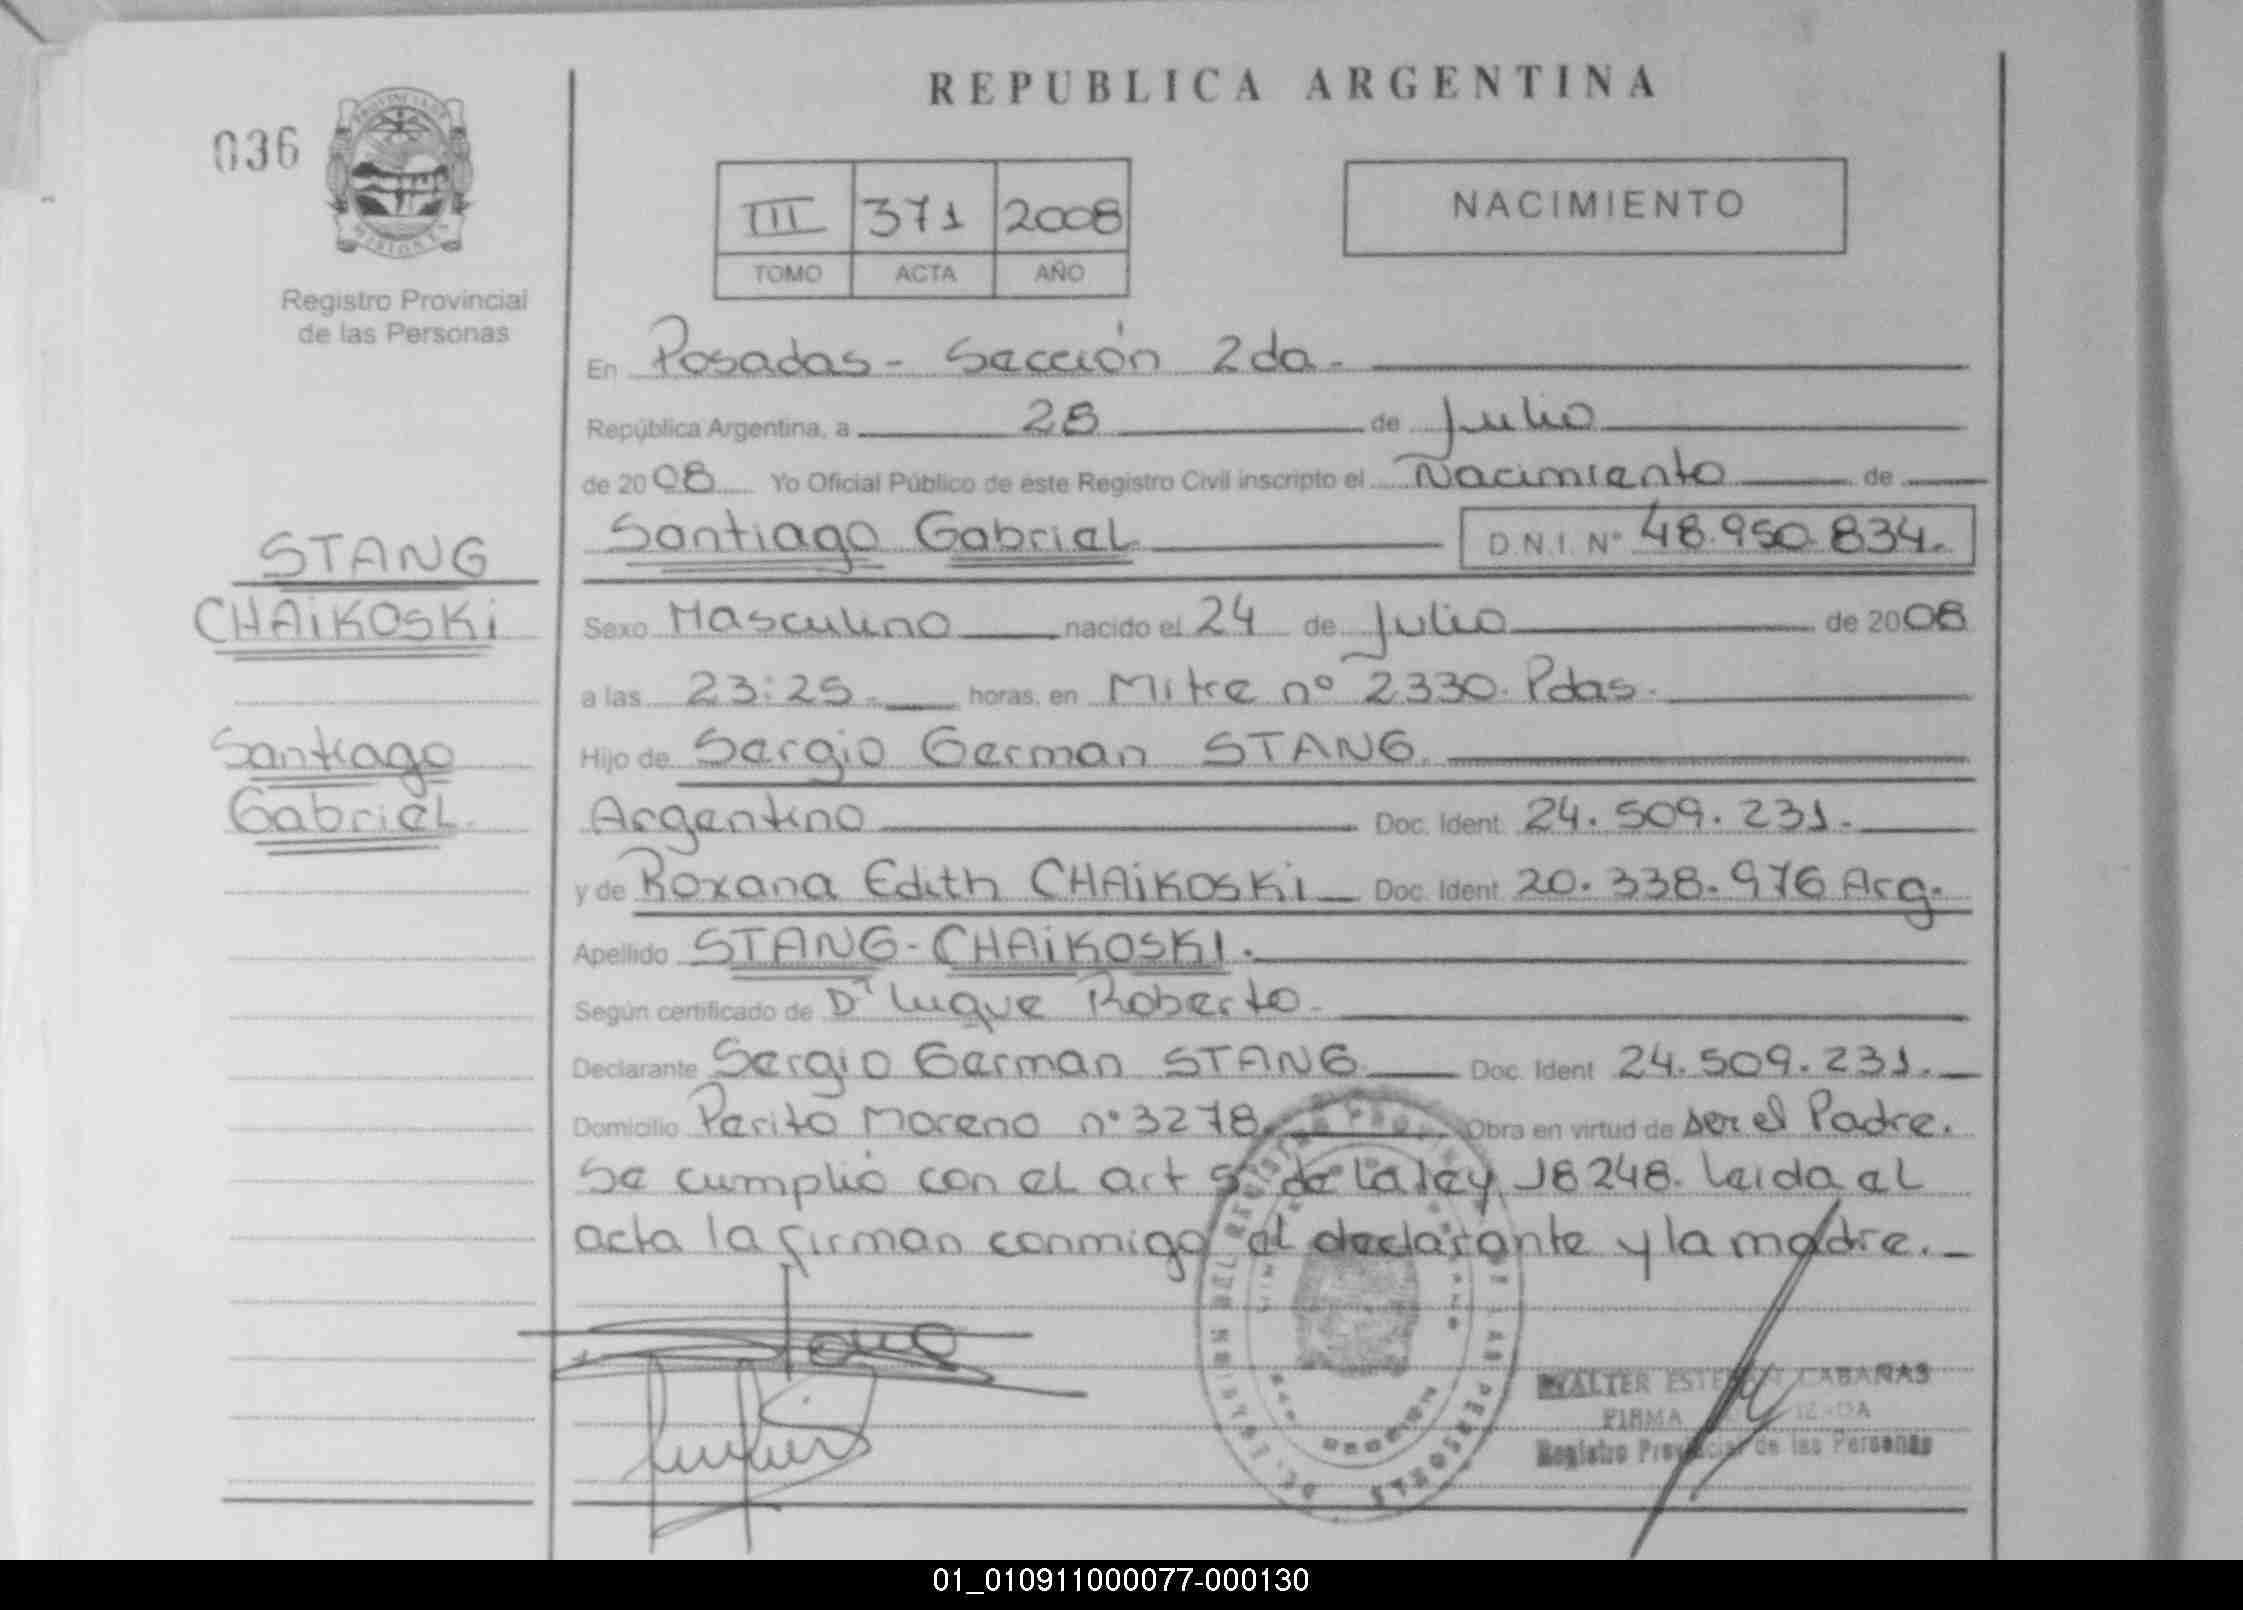 REPUBLICA ARGENTINA
036
PROVINCIA DE
MISIONES
Registro Provincial
de las Personas
III 371 2008
TOMO ACTA AÑO
NACIMIENTO
En Posadas - Sección 2da.
República Argentina, a 28 de Julio
de 2008 Yo Oficial Público de este Registro Civil inscripto el Nacimiento de
Santiago Gabriel D.N.I. Nº 48.950.834.
STANG
CHAiKOSKi
Santiago
Gabriel.
Sexo Masculino nacido el 24 de Julio de 2008
a las 23:25. horas, en Mitre nº 2330. Pdas.
Hijo de Sergio German STANG.
Argentino Doc. Ident. 24.509.231.
y de Roxana Edith CHAiKOSKi Doc. Ident. 20.338.976 Arg.
Apellido STANG - CHAiKOSKI.
Según certificado de Dr Luque Roberto.
Declarante Sergio German STANG Doc. Ident 24.509.231.
Domicilio Perito Moreno nº 3278. Obra en virtud de ser el Padre.
Se cumplió con el art 5 de la ley 18248. Leida el
acta la firman conmigo el declarante y la madre.
WALTER CABAÑAS
FIRMA
Registro Provincial de las Personas
01_010911000077-000130